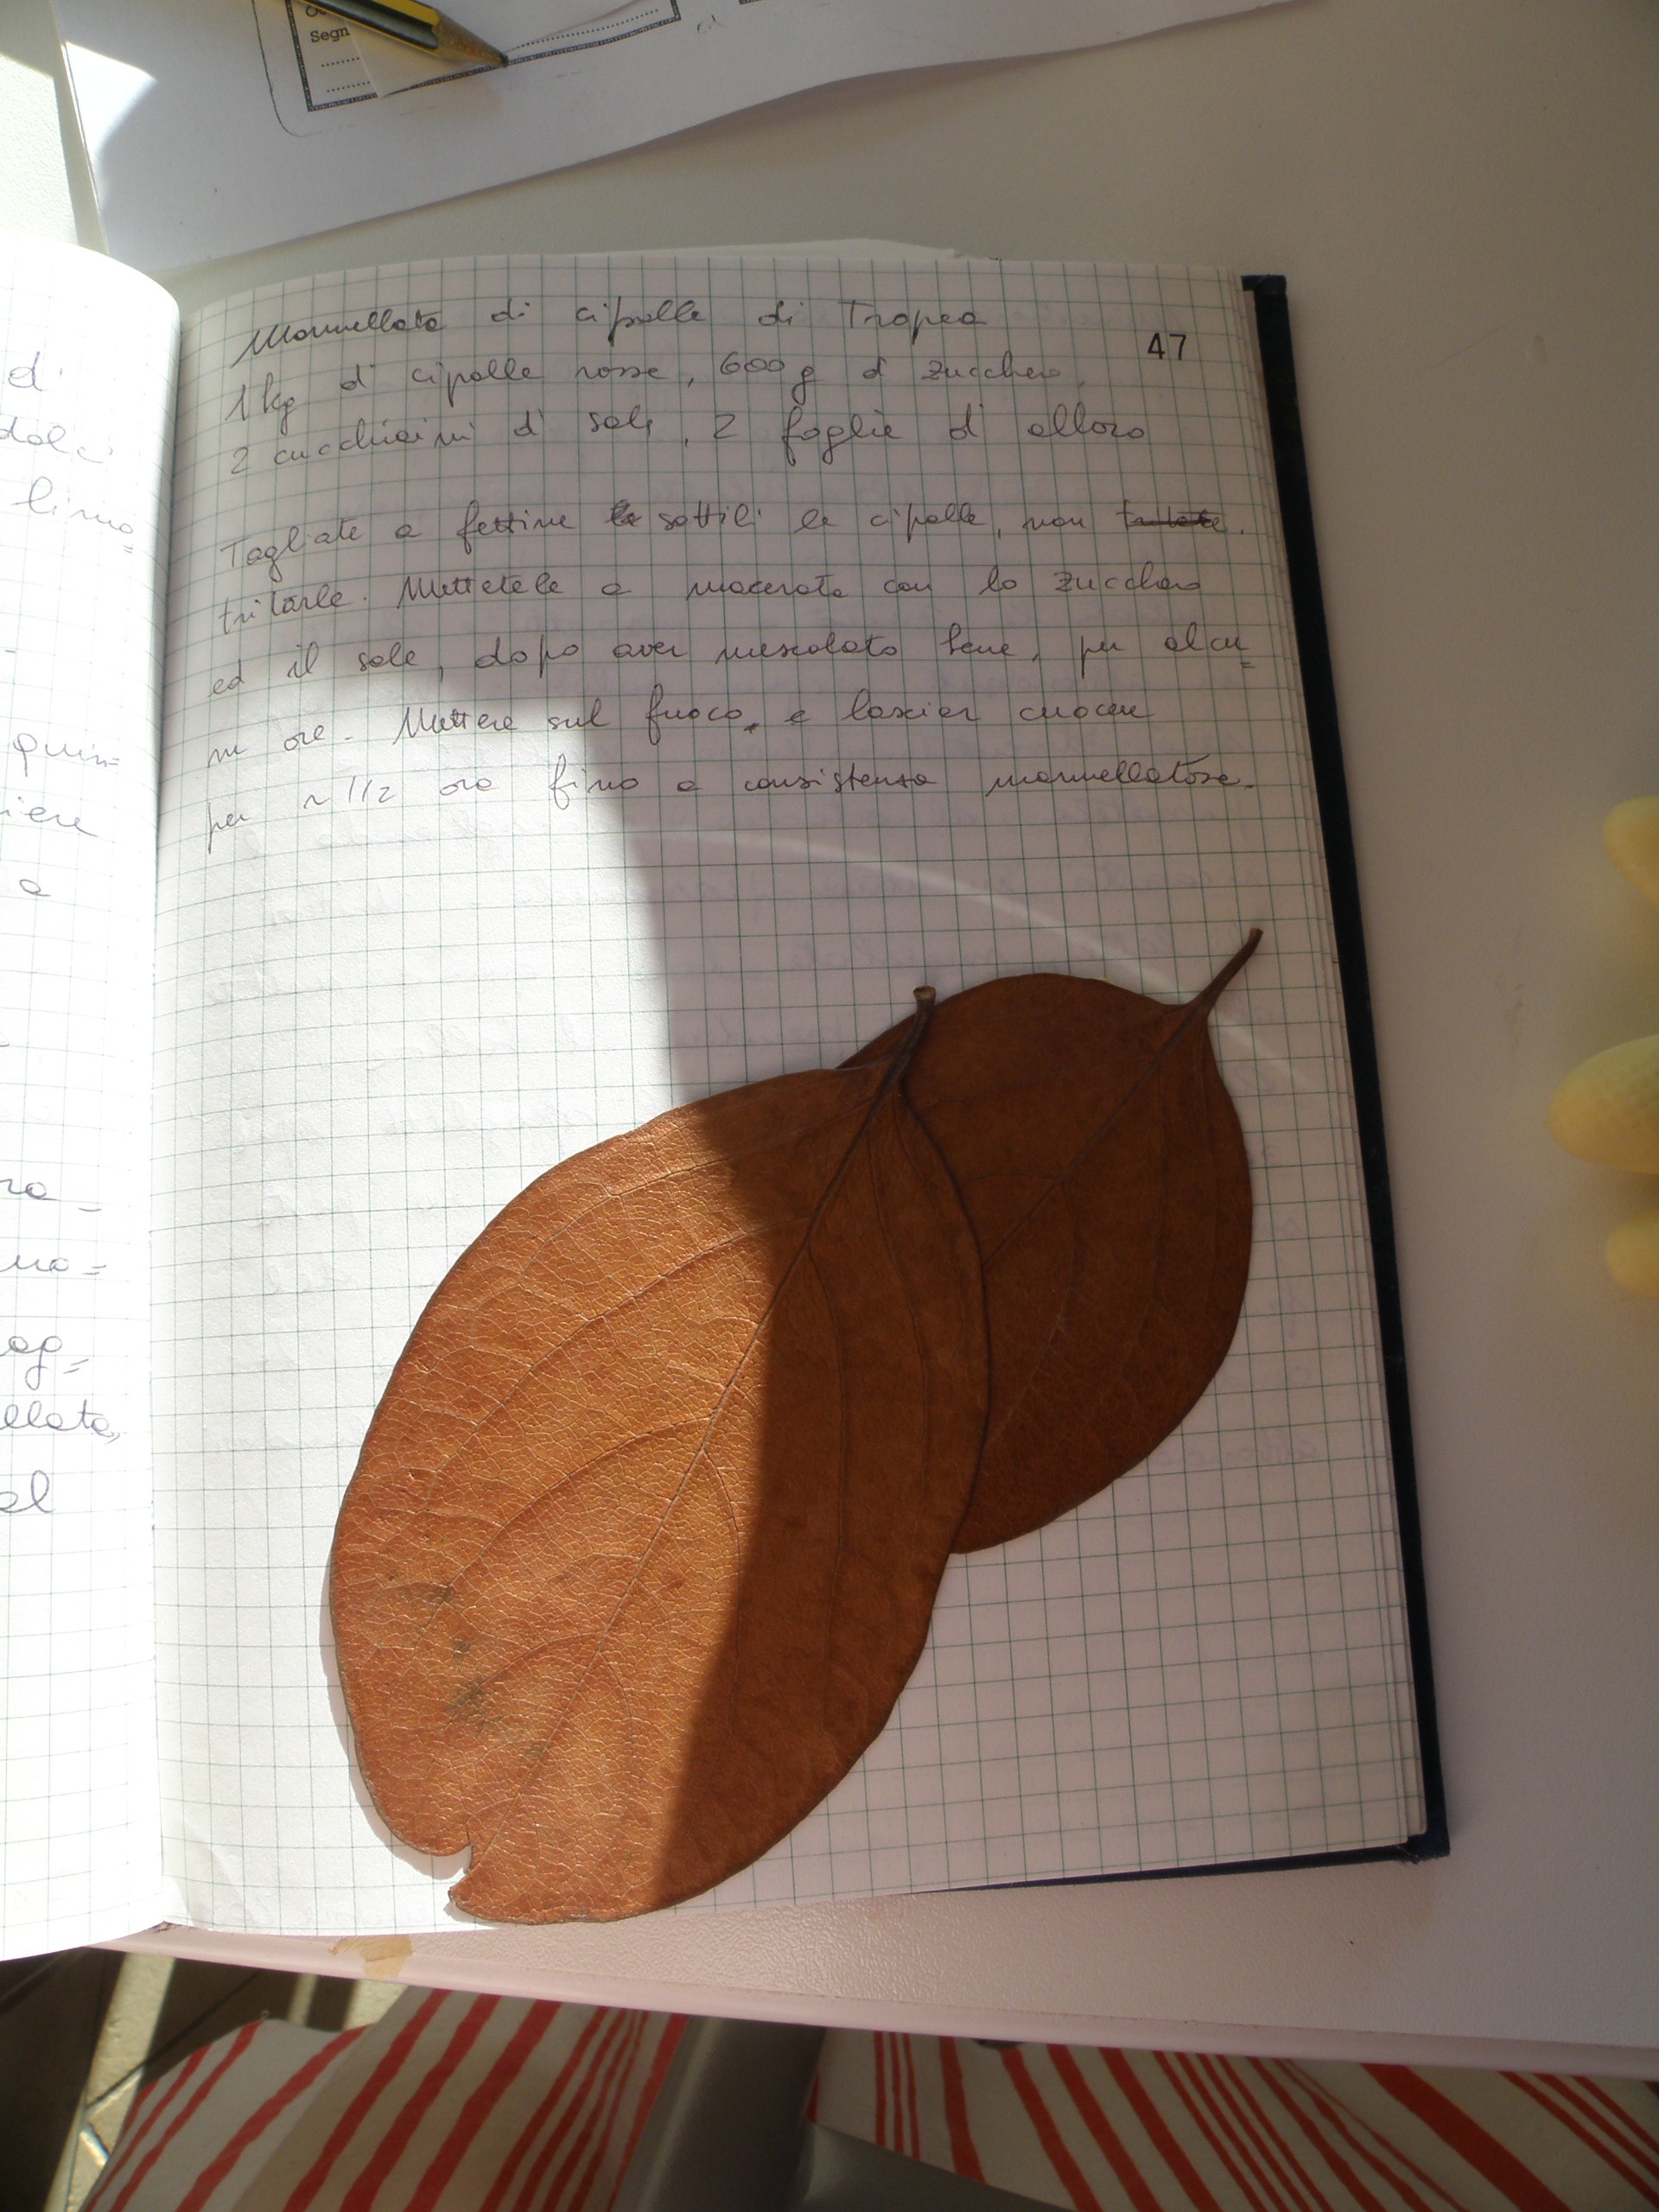 Segn
Marmellata di cipolle di Tropea
47
1 kg di cipolle rosse, 600 g di zucchero,
2 cucchiaini di sale, 2 foglie di alloro
Tagliate a fettine le sottili le cipolle, non
tritarle. Mettetele a macerate con lo zucchero
ed il sale, dopo aver mescolato bene, per alcu=
ne ore. Mettere sul fuoco, e lascier cuocere
per ~ 1/2 ora fino a consistenza marmellatosa.
di
dolci
limo=
quin=
iere
a
ra-
mo=
og=
llata,
al